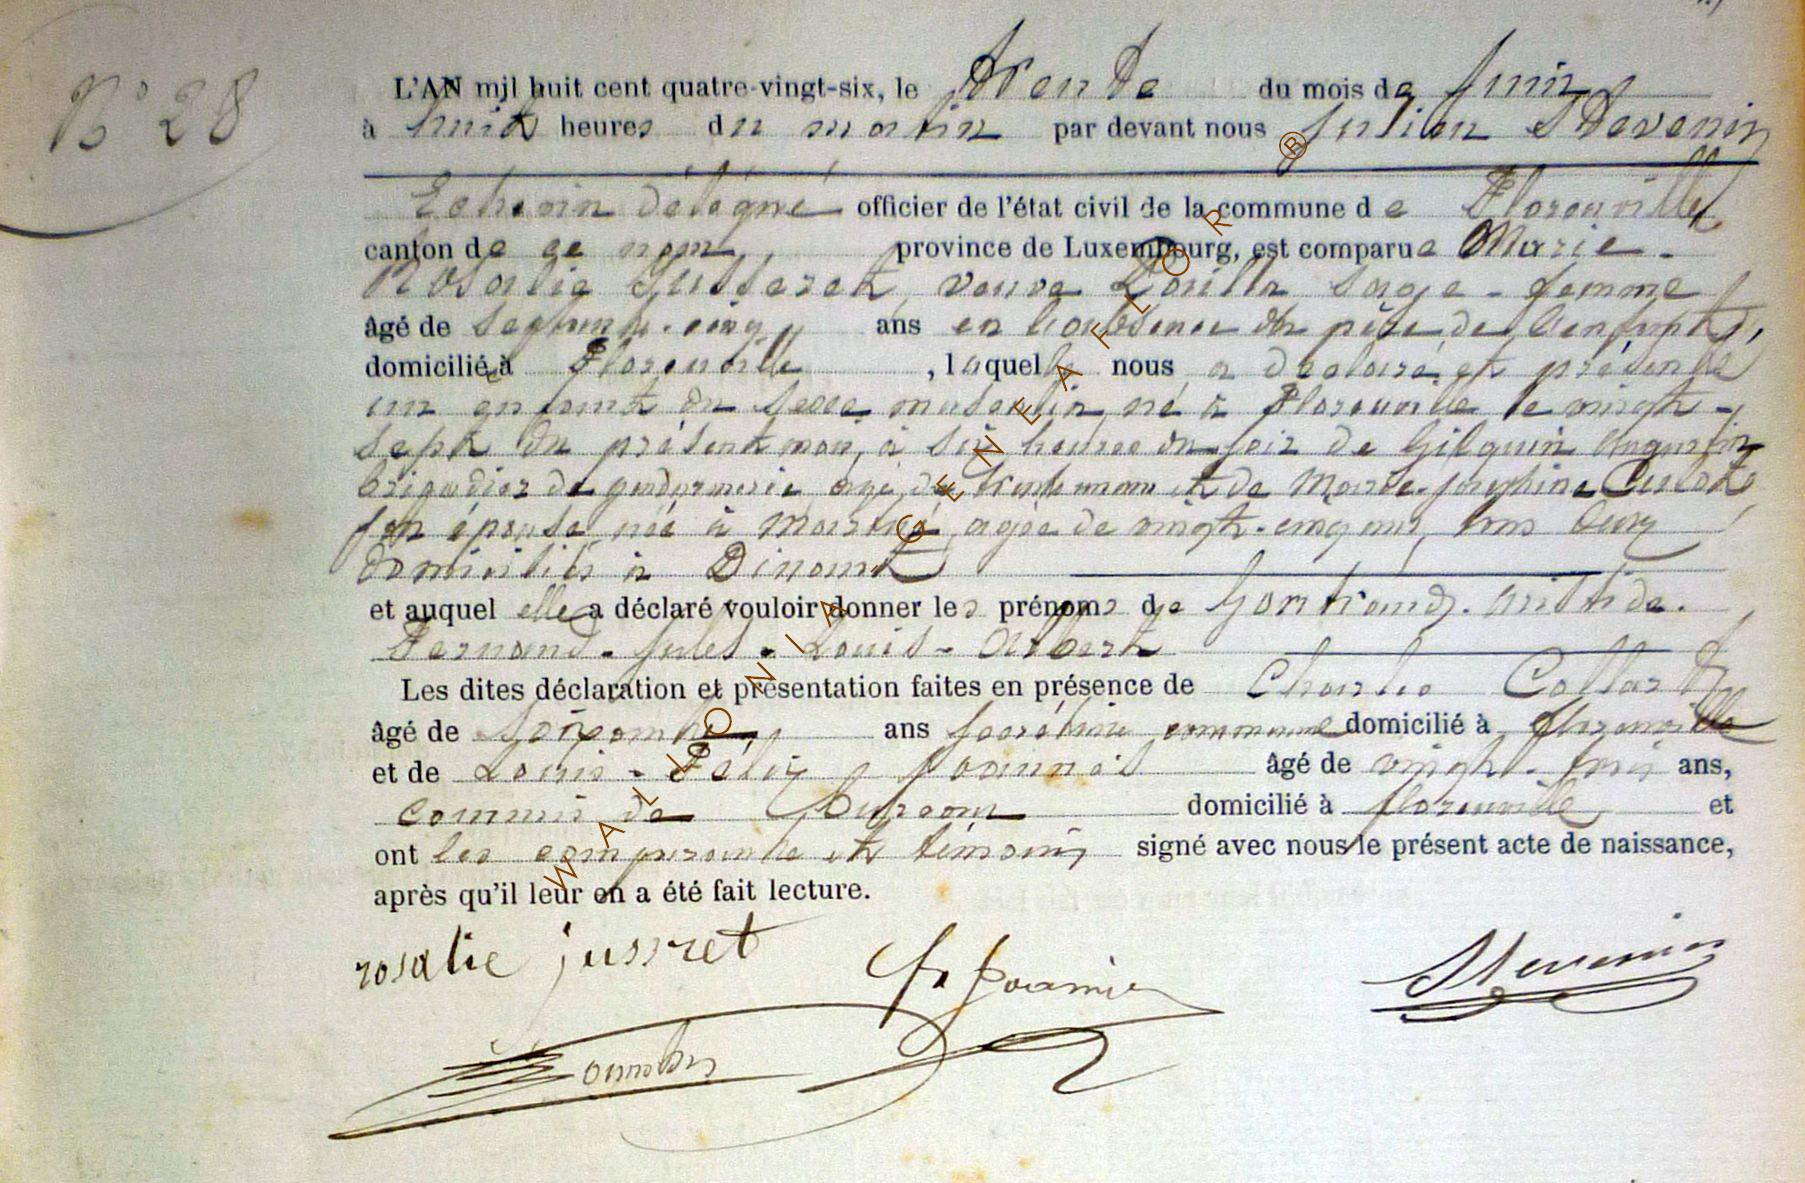 N° 28
L'AN mil huit cent quatre-vingt-six, le trente du mois de Juin
à huit heures du matin par devant nous Julien Stevenin
Echevin délégué officier de l'état civil de la commune de Florenville
canton de ce nom province de Luxembourg, est comparue Marie-
Rosalie Jusseret, veuve sage-femme
âgé de septante-cinq ans en l'absence du père de l'enfant,
domiciliée à Florenville, laquelle nous a declaré et présenté
un enfant du sexe masculin, né à Florenville le vingt-
sept du présent mois, à six heures du soir de Gilquin Augustin
brigadier de gendarmerie âgé de trente et de Marie-Joséphine
son épouse née à agée de vingt-cinq ans, tous deux
domiciliés à Dinant
et auquel elle a déclaré vouloir donner les prénoms de Gontrand-Aristide-
Fernand-Jules-Louis-Albert
Les dites déclaration et présentation faites en présence de Charles
âgé de ans secrétaire communal domicilié à Florenville
et de Louis-Félix âgé de vingt-trois ans,
commis de domicilié à Florenville et
ont les comparante et témoins signé avec nous le présent acte de naissance,
après qu'il leur en a été fait lecture.
rosalie jussret
Stevenin
WALLONIA GENEAFLOR ®